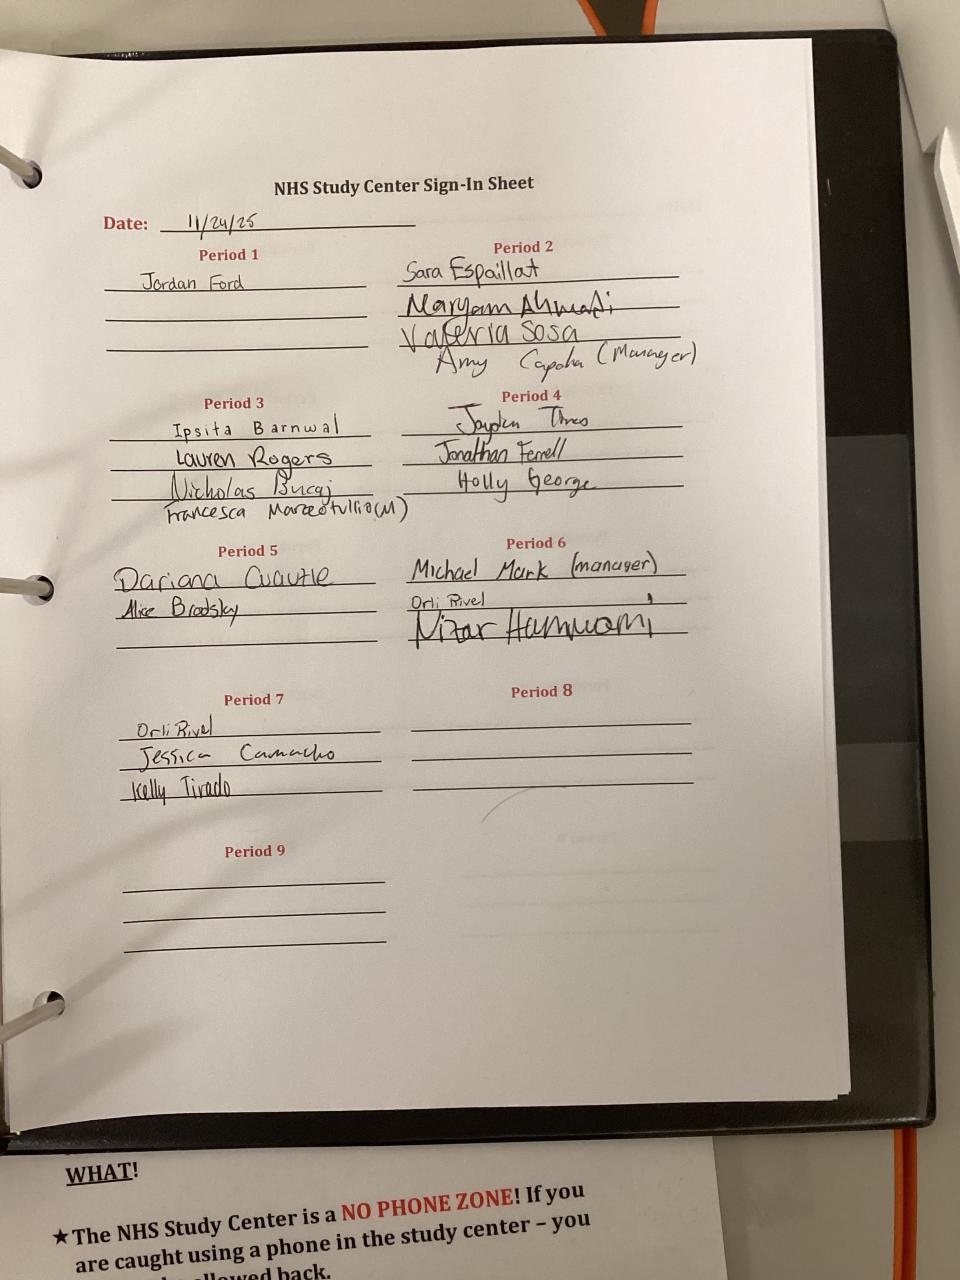 NHS Study Center Sign-In Sheet
Date: 11/24/25
Period 1
Jordan Ford
Period 2
Sara Espaillat
Maryam Ahmadi
Valeria Sosa
Amy (Manager)
Period 3
Ipsita Barnwal
Lauren Rogers
Nicholas Bucaj
Francesca Marzeotullio(M)
Period 4
Jayden
Jonathan Ferrell
Holly George
Period 5
Dariana Cuautle
Alice Brodsky
Period 6
Michael Mark (manager)
Orli Rivel
Nizar Hamwomi
Period 7
Orli Rivel
Jessica Camacho
Kelly Tirado
Period 8
Period 9
WHAT!
★The NHS Study Center is a NO PHONE ZONE! If you
are caught using a phone in the study center – you
allowed back.